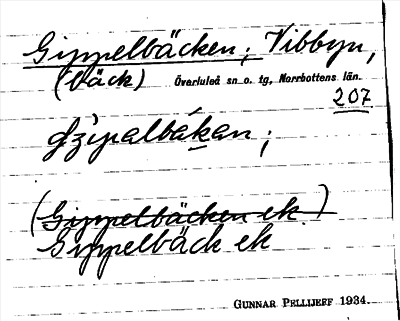 Gippelbäcken; Vibbyn,
(bäck) Överluleå sn o. tg, Norrbottens län.
207
(Gippelbäcken ek)
Gippelbäck ek
GUNNAR PELLIJEFF 1934.